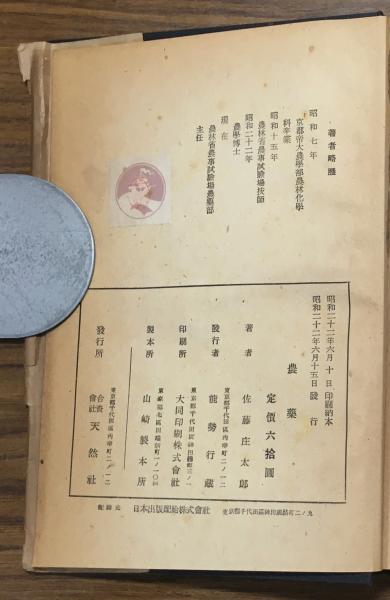 著者略歴
昭和七年
京都帝大農學部農林化學
科卒業
昭和十五年
農林省農事試驗場技師
昭和二十二年
農學博士
現在
農林省農事試驗場農藥部
主任
昭和二十二年六月十日印刷納本
昭和二十二年六月十五日發行
農藥
定價六拾圓
著者 佐藤庄太郎
東京都千代田區內幸町二ノ二
發行者 能勢行蔵
東京都千代田區神田錦町三ノ一
印刷所 大同印刷株式會社
製本所 山崎製本所
東京都千代田區內幸町二ノ二
發行所 合資會社 天然社
配給元 日本出版配給株式會社 東京都千代田區神田淡路町二ノ九